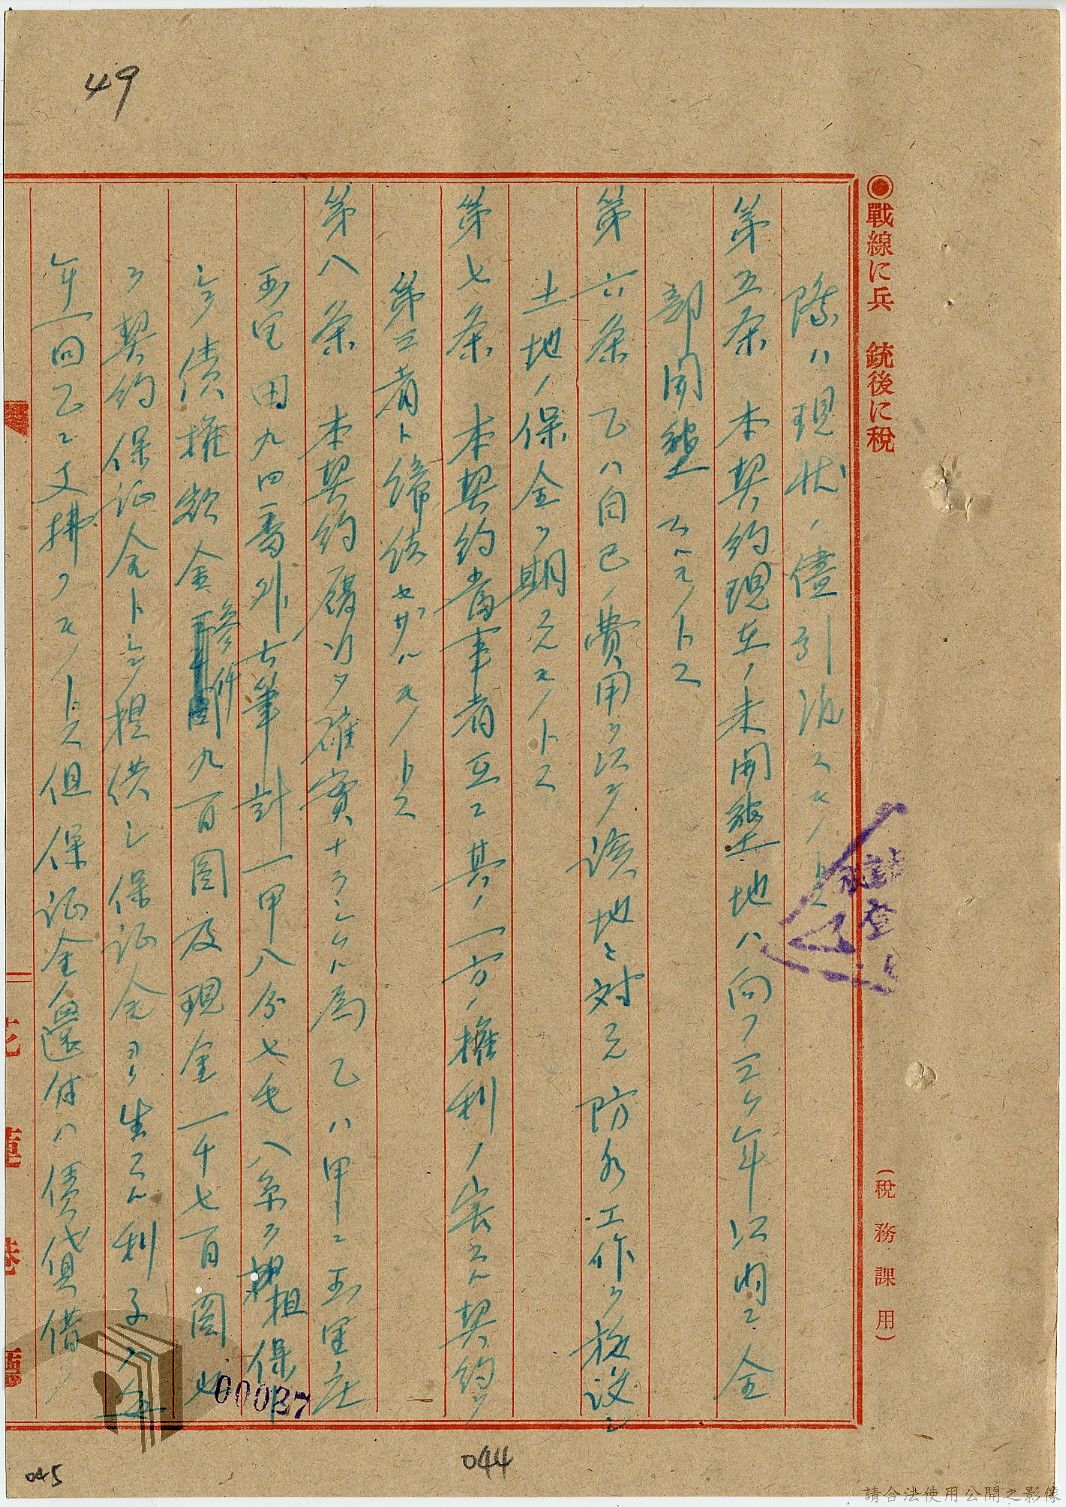 49
◉戰線に兵 銃後に税
(税務課用)
際ハ現状ノ儘引渡スモノトス
第五条 本契約現在ノ未開墾地ハ向フ三ケ年以内ニ全
部開墾スルコト
第六条 乙ハ自己ノ費用ヲ以テ該地ニ対シ防水工作ヲ施設シ
土地ノ保全ヲ期スルモノトス
第七条 本契約当事者互ニ其ノ一方ノ權利ノ害スル契約ヲ
第三者ト締結セザルモノトス
第八条 本契約履行ヲ確實ナラシムル為乙ハ甲ニ玉里庄
玉里田九四番外七筆計一甲八分七毛八糸ヲ担保
シ債権額金参仟九百圓及現金一千七百圓也
ヲ契約保証金トシ提供シ保証金ヨリ生スル利子ハ毎
年一回乙ニ支拂フモノトス但保証金還付ハ債貸借ノ
花蓮港廳
00037
044
045
請合法使用公開之影像